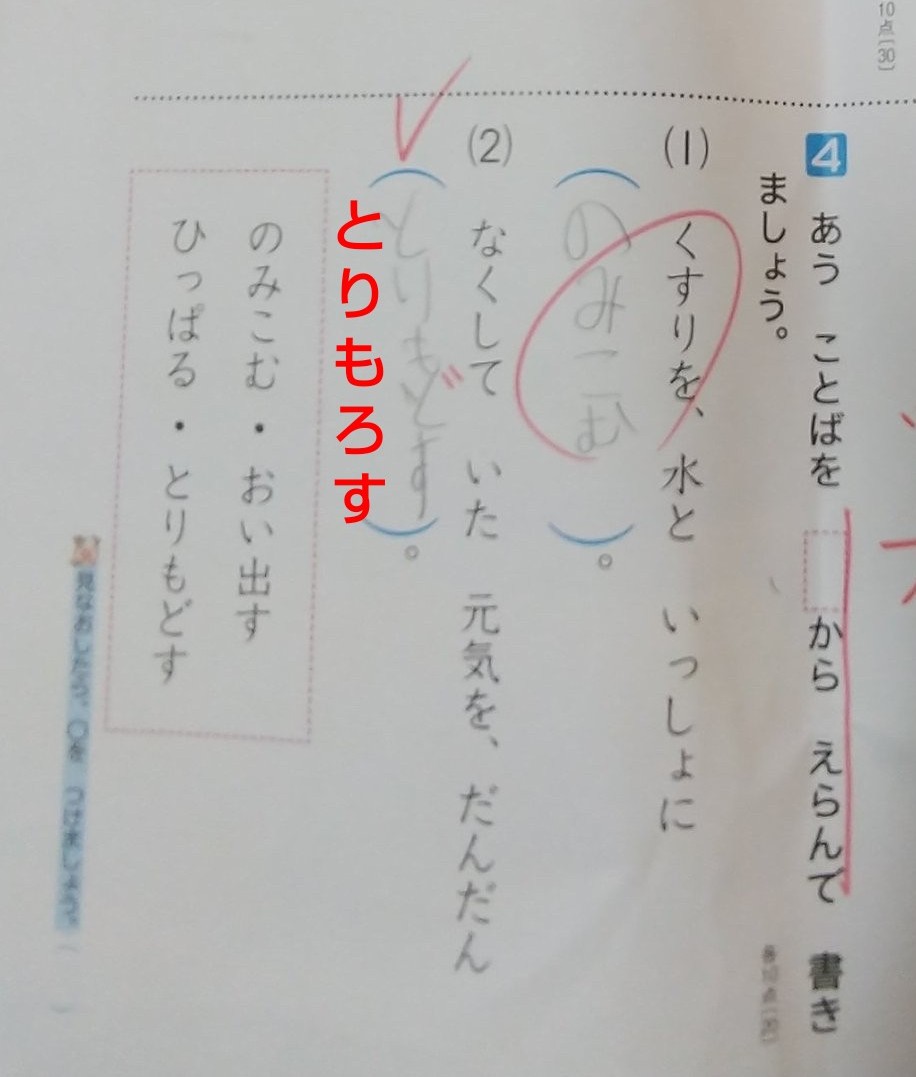 10点(30)
4 あう ことばを から えらんで 書き
ましょう。
(1) くすりを、水と いっしょに
(のみこむ)。
(2) なくして いた 元気を、だんだん
(とりもどす)。
とりもろす
のみこむ・おい出す
ひっぱる・とりもどす
見なおしたら、〇を つけましょう。( )